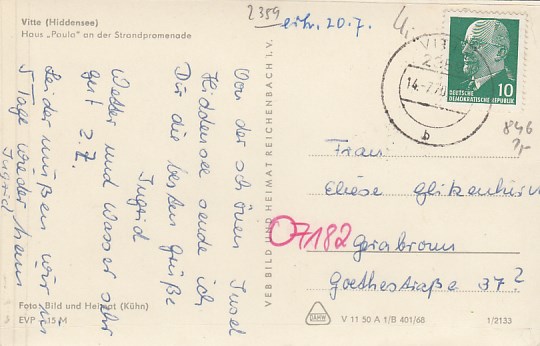 Vitte (Hiddensee)
Haus „Paula" an der Strandpromenade
2359 erh. 20.7.
Von der schönen Insel
Hiddensee sende ich
Dir die besten Grüße
Ingrid
Wetter und Wasser sehr
gut 2.7.
Leider müßen wir in
5 Tage wieder heim
Ingrid
Foto: Bild und Heimat (Kühn)
EVP 15 M
VEB BILD UND HEIMAT REICHENBACH I. V.
14.-7.70
b
10
DEUTSCHE
DEMOKRATISCHE REPUBLIK
846
Frau
Eliese
07182 Gerabronn
Goethestraße 37?
DAHW
V 11 50 A 1/B 401/68
1/2133